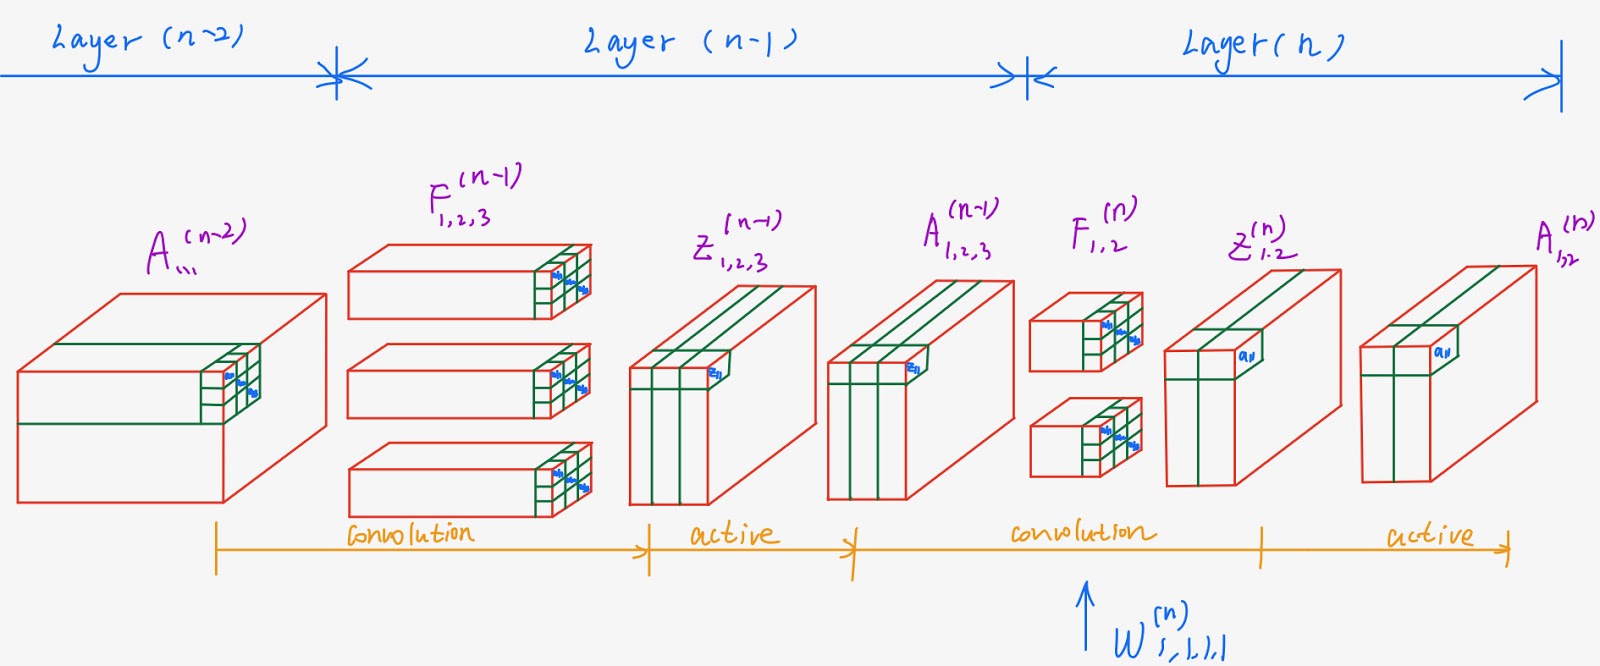 Layer (n-2)
Layer (n-1)
Layer (n)
A (n-2) ,,,
F (n-1) 1,2,3
Z (n-1) 1,2,3
A (n-1) 1,2,3
F (n) 1,2
Z (n) 1.2
A (n) 1,2
z11
z11
a11
a11
convolution
active
convolution
active
W (n) 1,1,1,1